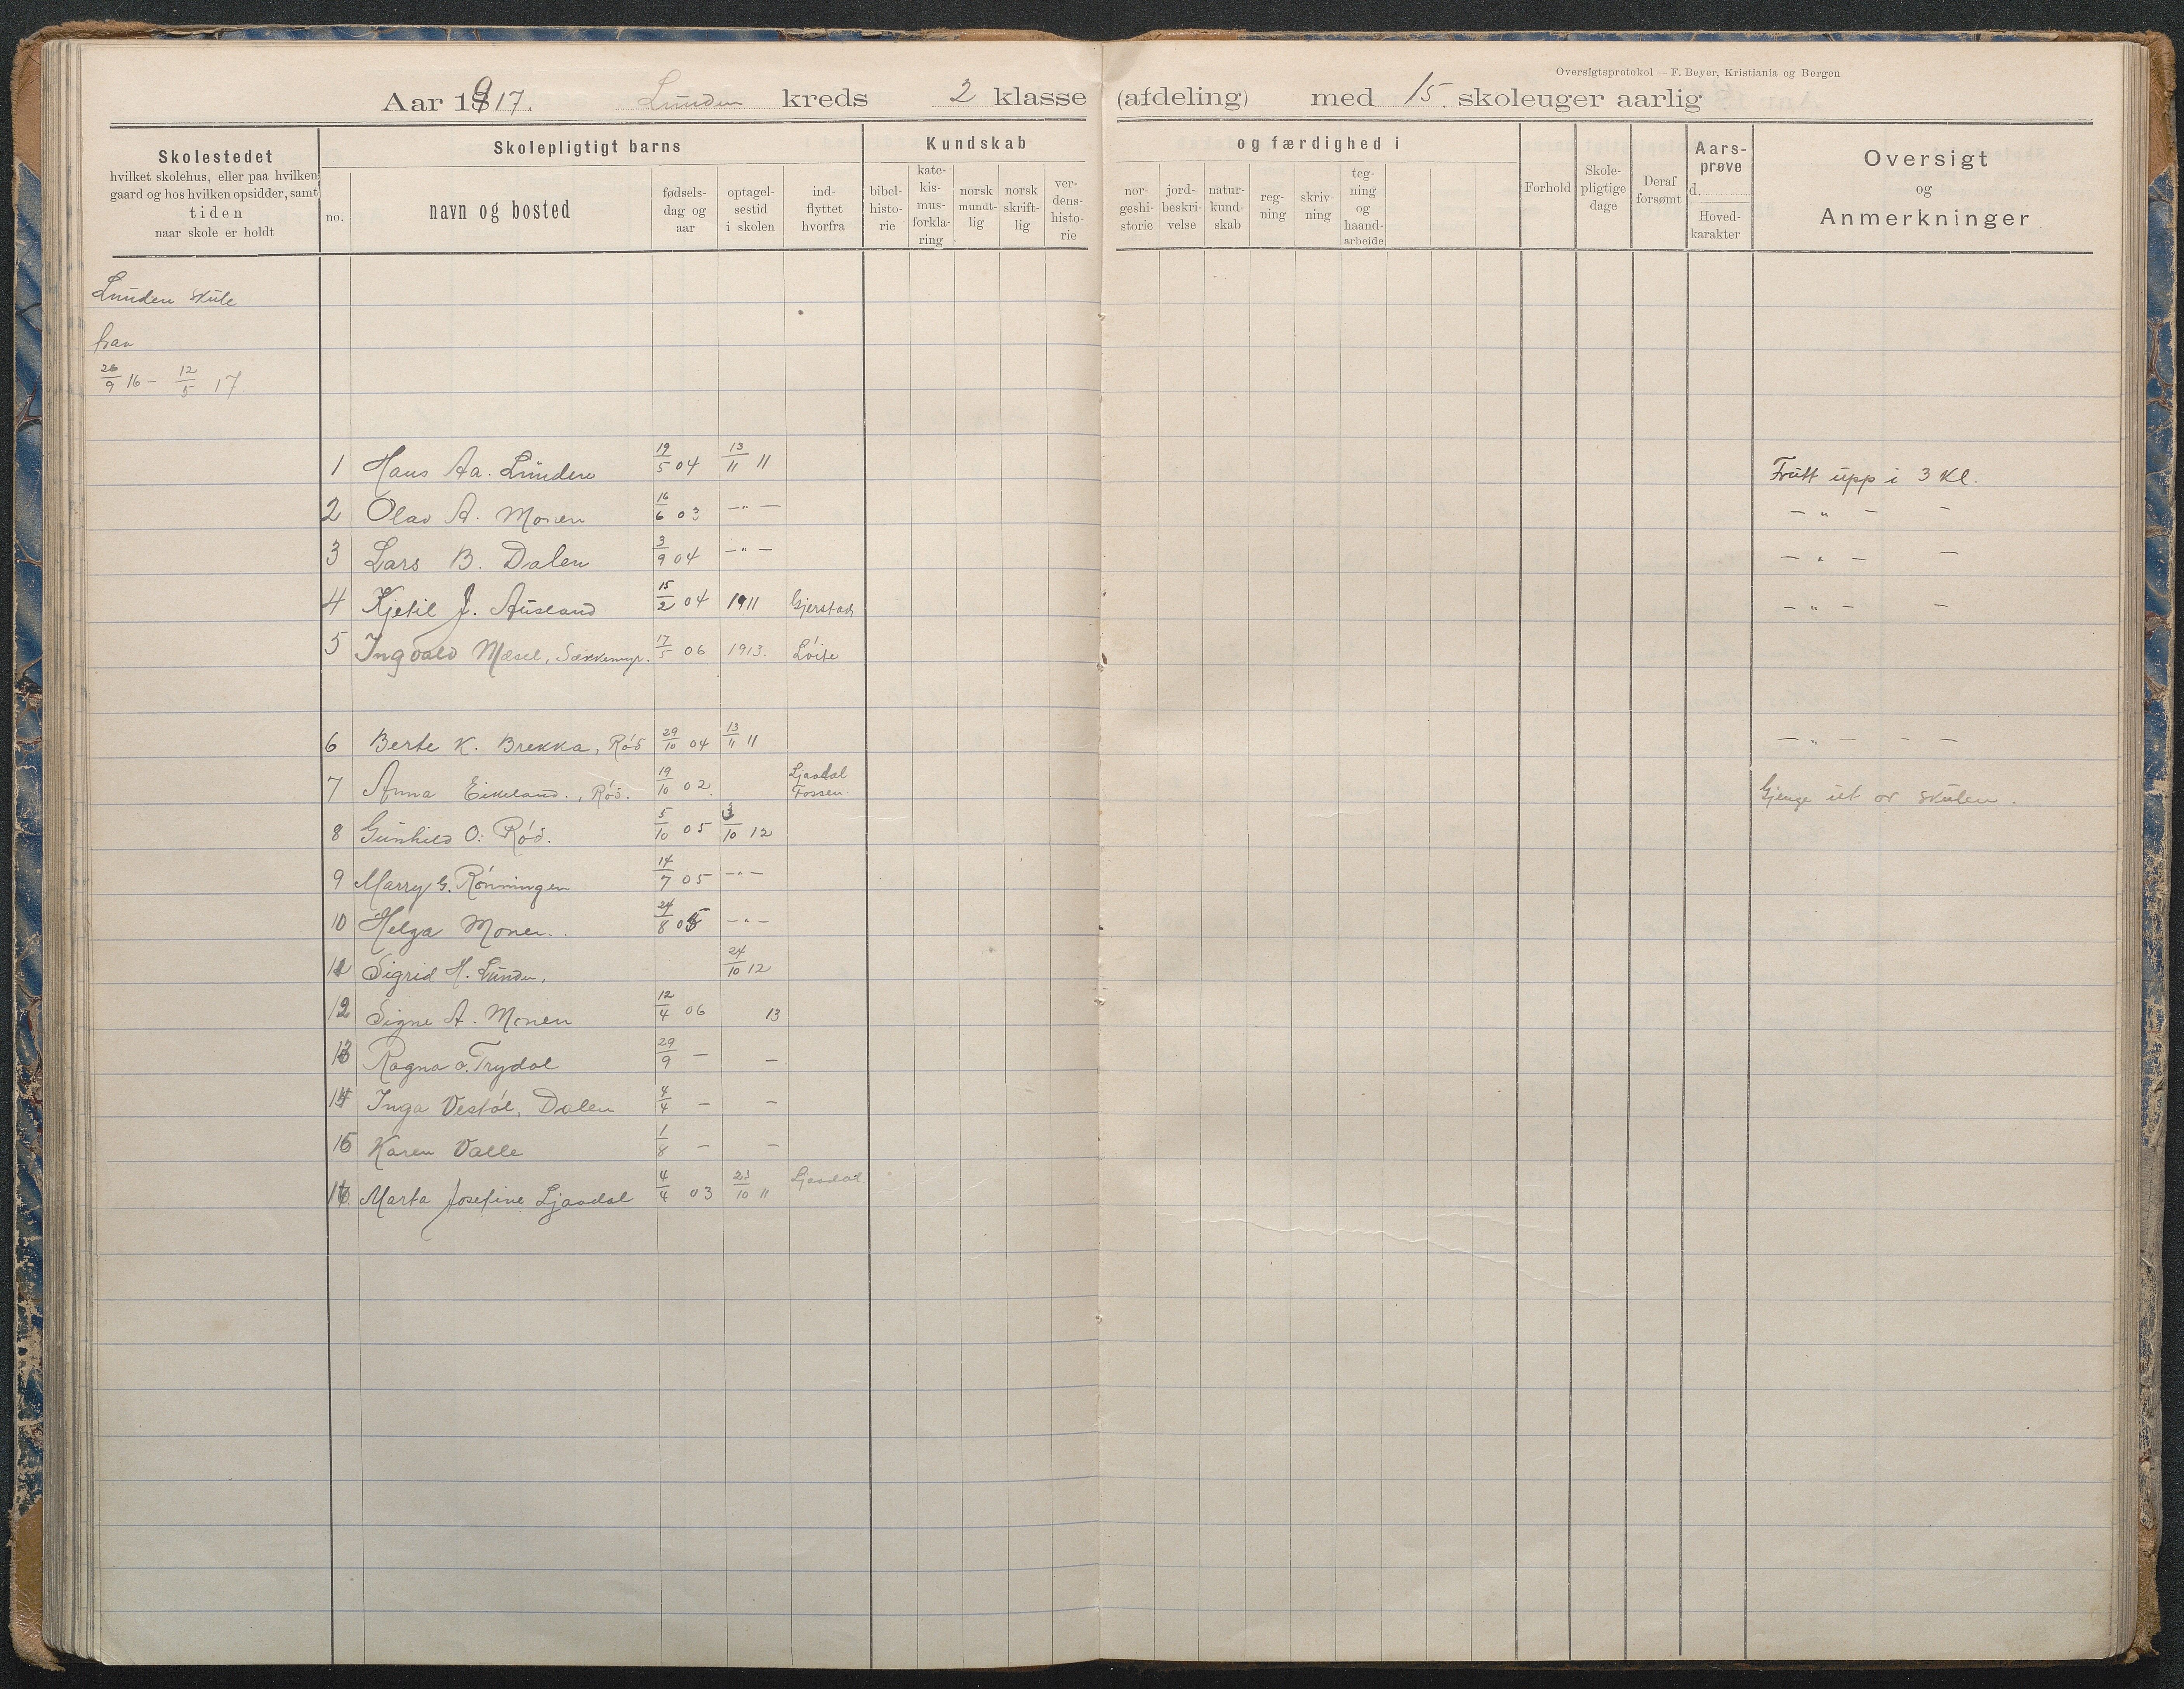 Oversigtsprotokol — F. Beyer, Kristiania og Bergen
Aar 1917. Lunden kreds 2 klasse (afdeling) med 15. skoleuger aarlig
Skolestedet
hvilket skolehus, eller paa hvilken
gaard og hos hvilken opsidder, samt
tiden
naar skole er holdt
Skolepligtigt barns
no.
navn og bosted
fødsels-
dag og
aar
optagel-
sestid
i skolen
ind-
flyttet
hvorfra
Kundskab
bibel-
histo-
rie
kate-
kis-
mus-
forkla-
ring
norsk
mundt-
lig
norsk
skrift-
lig
ver-
dens-
histo-
rie
og færdighed i
nor-
geshi-
storie
jord-
beskri-
velse
natur-
kund-
skab
reg-
ning
skriv-
ning
teg-
ning
og
haand-
arbeide
Forhold
Skole-
pligtige
dage
Deraf
forsømt
Aars-
prøve
d.
Hoved-
karakter
Oversigt
og
Anmerkninger
Lunden skule
fraa
26/9 16 – 12/5 17.
1 Hans Aa. Lunden 19/5 04 13/11 11 Flutt upp i 3 Kl.
2 Olav A. Monen 16/6 03 – " – – " – –
3 Lars B. Dalen 3/9 04 – " – – " – –
4 Kjetil J. Ausland 15/2 04 1911 Gjerstad – " – –
5 Ingvald Mæsel, Sækkemyr. 17/5 06 1913. Løite
6 Berte K. Brekka, Röd 29/10 04 13/11 11 – " – – –
7 Anna Eikeland., Röd. 19/10 02. Ljaadal Fossen. Gjenge ut or skulen.
8 Gunhild O. Röd. 5/10 05 3/10 12
9 Marry G. Rönningen 14/7 05 – " –
10 Helga Monen. 24/8 05 – " –
11 Sigrid H. Lunden. 24/10 12
12 Signe A. Monen 12/4 06 13
13 Ragna O. Trydal 29/9 – –
14 Inga Vestöl, Dalen 4/4 – –
15 Karen Valle 1/8 – –
16. Marta Josefine Ljaadal 4/4 03 23/10 11 Ljaadal